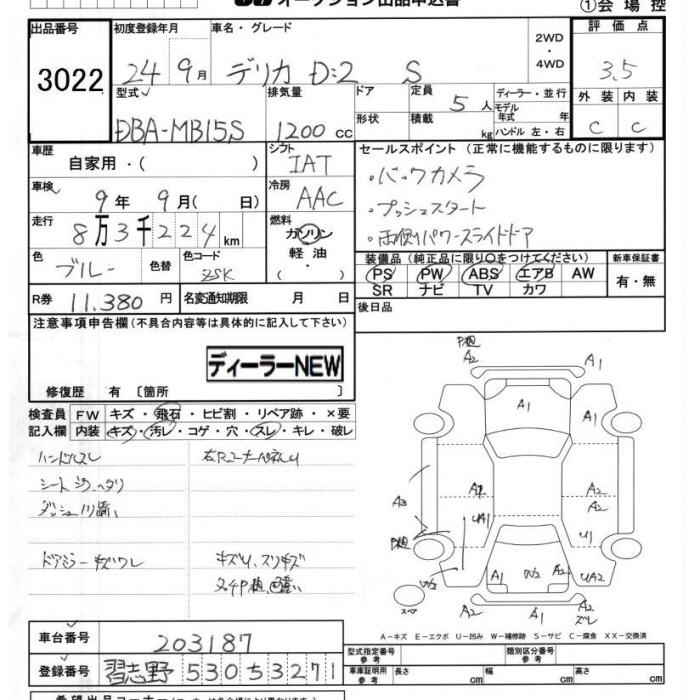 オークション出品申込書
①会場控
出品番号 初度登録年月 車名・グレード 2WD・4WD 評価点
3022 24 9月 デリカ D:2 S 3.5
型式 排気量 ドア形状 定員積載 5人 kg ディーラー・並行 モデル年式 年 ハンドル 左・右 外装 内装
DBA-MB15S 1200cc C C
車歴 自家用・( ) シフト IAT セールスポイント (正常に機能するものに限ります)
車検 9年 9月( 日) 冷房 AAC ・バックカメラ
・プッシュスタート
走行 8万3千224km 燃料 ガソリン・軽油・( ) ・両側パワースライドドア
色 ブルー 色替 色コード ZSK 装備品 (純正品に限り○をつけてください) 新車保証書
PS PW ABS エアB AW 有・無
SR ナビ TV カワ
R券 11.380円 名変通知期限 月 日 後日品
注意事項申告欄 (不具合内容等は具体的に記入して下さい)
ディーラーNEW
修復歴 有 〔箇所 〕
検査員 FW キズ・飛石・ヒビ割・リペア跡・×要
記入欄 内装 キズ・汚レ・コゲ・穴・スレ・キレ・破レ
ハンドルスレ
シート
ドアミラーキズワレ キズU、スリキズ
A2 A1
A1 A1
A3 A2
A2
U1
A1 W2 A2 UA2
A1 A2
スペア
A-キズ E-エクボ U-凹み W-補修跡 S-サビ C-腐食 XX-交換済
車台番号 203187 型式指定番号 参考 類別区分番号 参考
登録番号 習志野 530 ら 3271 車庫証明用 参考 長さ cm 幅 cm 高さ cm